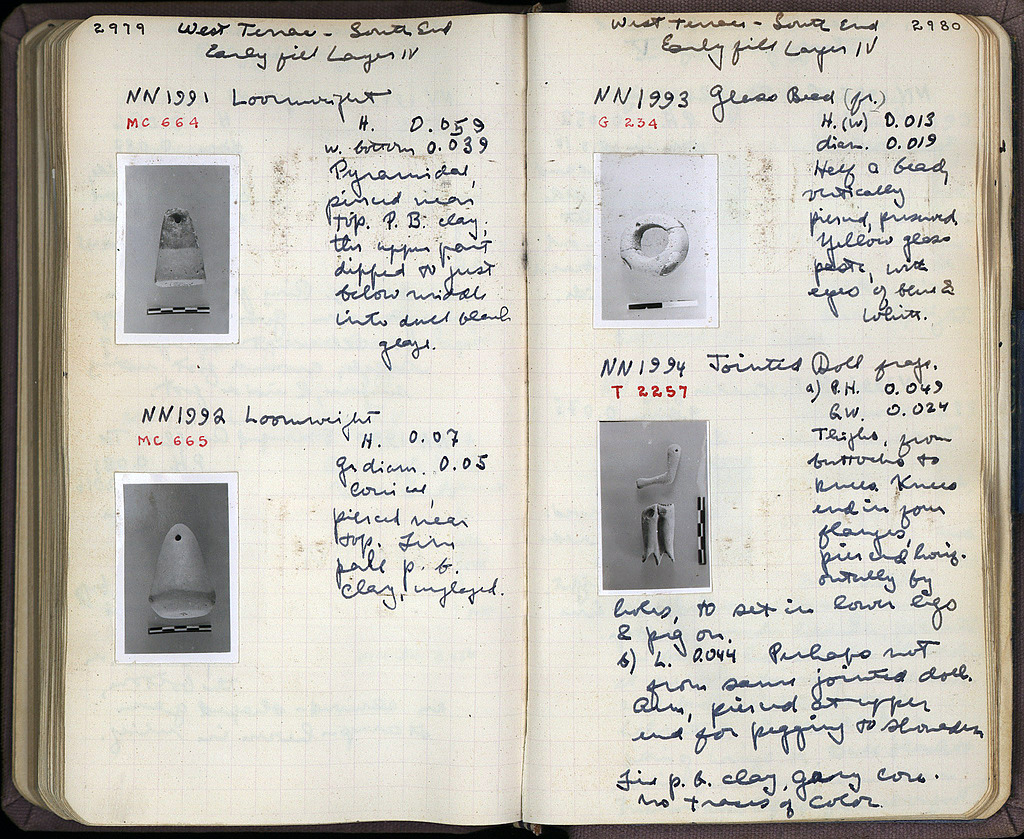 2979 West Terrace - South End
Early fill Layer IV
NN 1991 Loomweight
MC 664
H. 0.059
w. bottom 0.039
Pyramidal,
pierced near
top. P. B. clay,
the upper part
dipped to just
below middle
into dull black
glaze.
NN 1992 Loomweight
MC 665
H. 0.07
Gr diam. 0.05
Conical,
pierced near
top. Fine
pale p. b.
clay, unglazed.
West Terrace - South End 2980
Early fill Layer IV
NN 1993 Glass Bead (fr.)
G 234
H. (W) 0.013
diam. 0.019
Half a bead,
vertically
pierced, preserved.
Yellow glass
paste, with
eyes of blue &
white.
NN 1994 Jointed Doll frags.
T 2257
a) P.H. 0.049
G.W. 0.024
Thighs, from
buttocks to
knees. Knees
end in four
flanges,
pierced horiz-
ontally by
holes, to set in lower legs
& peg on.
b) L. 0.044 Perhaps not
from same jointed doll.
Arm, pierced at upper
end for pegging to shoulder
Fine p. b. clay, gray core.
No traces of color.